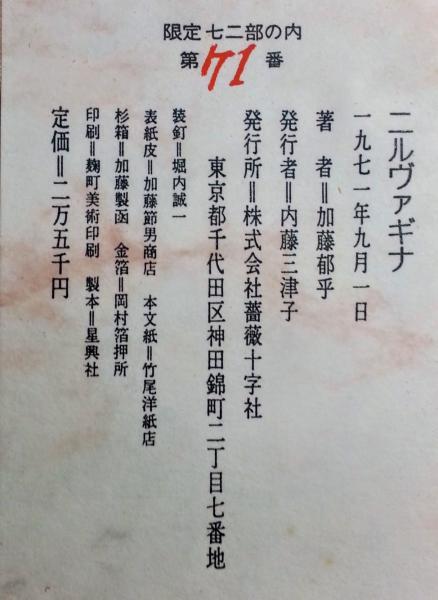 限定七二部の内
第71番
ニルヴァギナ
一九七一年九月一日
著　者＝加藤郁乎
発行者＝内藤三津子
発行所＝株式会社薔薇十字社
東京都千代田区神田錦町二丁目七番地
装釘＝堀内誠一
表紙皮＝加藤節男商店　本文紙＝竹尾洋紙店
杉箱＝加藤製函　金箔＝岡村箔押所
印刷＝麹町美術印刷　製本＝星興社
定価＝二万五千円